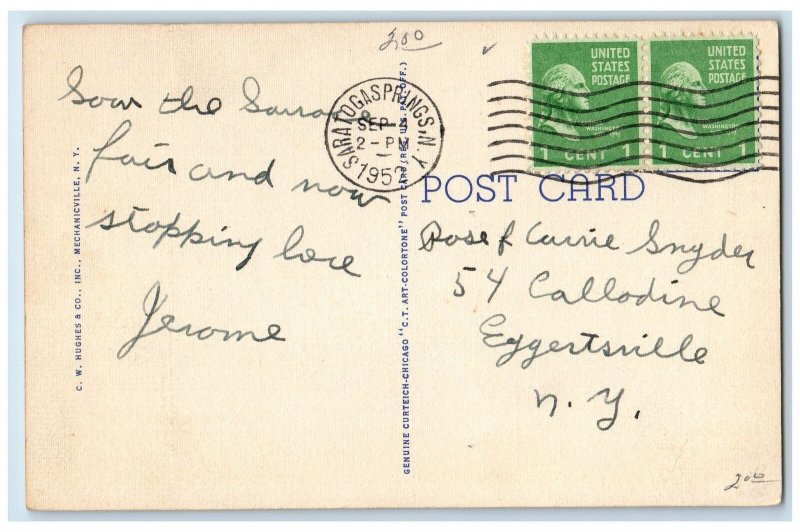 2⁰⁰
SARATOGA SPRINGS, N.Y.
SEP 4
2 - PM
UNITED STATES POSTAGE
WASHINGTON
1 CENT 1
UNITED STATES POSTAGE
WASHINGTON
1 CENT 1
Saw the
fair and now
stopping
Jerome
C. W. HUGHES & CO., INC., MECHANICVILLE, N. Y.
GENUINE CURTEICH-CHICAGO "C.T. ART-COLORTONE" POST CARD (REG. U.S. PAT. OFF.)
POST CARD
Rose & Carrie Snyder
54 Callodine
Eggertsville
N. Y.
2⁰⁰